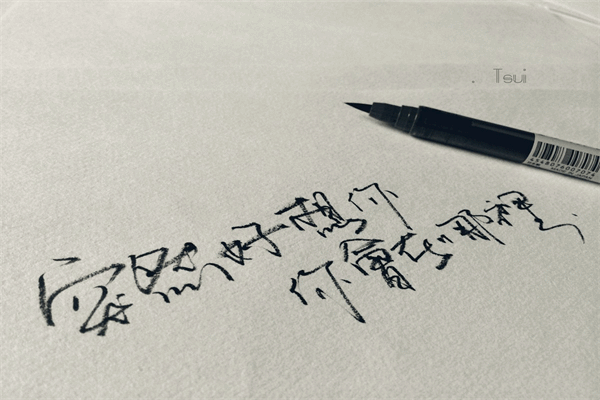 . Tsui
突然好想你
你會在那裡